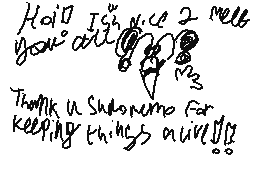 Haii Its nice 2 meet
you all!!
Thank u Sudomemo for
keeping things alive!!